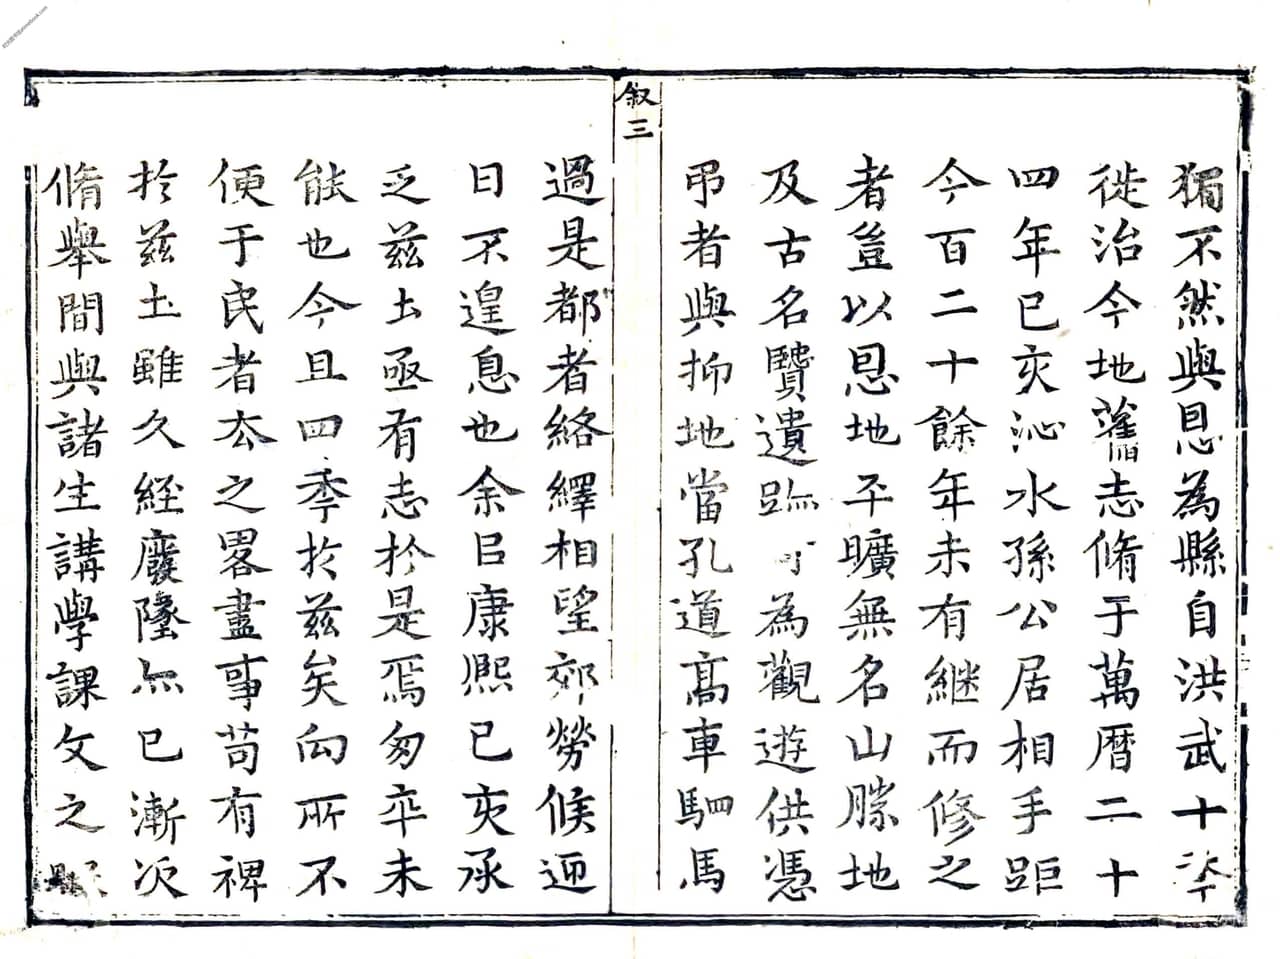 獨不然與恩為縣自洪武十年
徙治今地舊志脩于萬曆二十
四年巳亥沁水孫公居相手距
今百二十餘年未有継而修之
者豈以恩地平曠無名山勝地
及古名賢遺跡可為觀遊供憑
弔者與抑地當孔道高車駟馬
敘三
過是都者絡繹相望郊勞候迎
日不遑息也余㠯康熙己亥承
乏兹土亟有志扵是焉匆卒未
能也今且四季扵兹矣向所不
便于民者厺之畧盡事苟有裨
扵兹土雖久經廢墜亦已漸次
脩舉間與諸生講學課文之